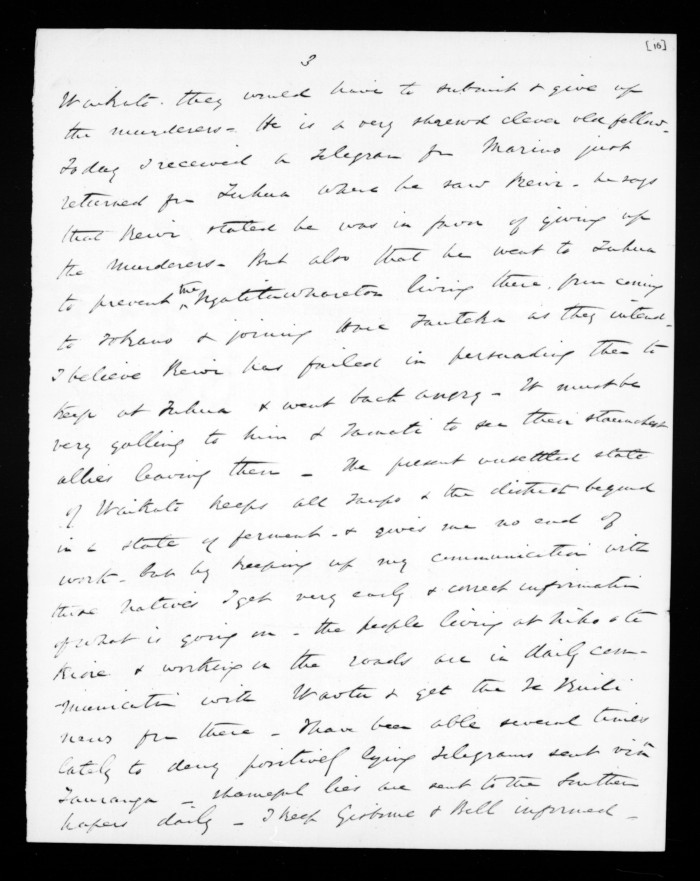 [10]
3
Waikato. they would have to submit & give up
the murderers - He is a very shrewd clever old fellow -
Today I received a Telegram fm Marino just
returned fm Tuhua where he saw Rewi - he says
that Rewi stated he was in favor of giving up
the murderers - But also that he went to Tuhua
to prevent the living there, from coming
to Tokano & joining Hare Tauteka as they intend -
I believe Rewi has failed in persuading them to
keep at Tuhua & went back angry - It must be
very galling to him & Tamati to see their staunchest
allies leaving them - The present unsettled state
of Waikato keeps all Taupo & the district beyond
in a state of ferment - & gives me no end of
work - but by keeping up my communication with
these natives I get very early & correct information
of what is going on - the people living at Niho o te
Kiore & working on the roads are in daily com-
munication with & get the Te Kuiti
news fm there - I have been able several times
lately to deny positively lying Telegrams sent via
Tauranga - shameful lies are sent to the Southern
papers daily - I keep Gisborne & Bell informed -